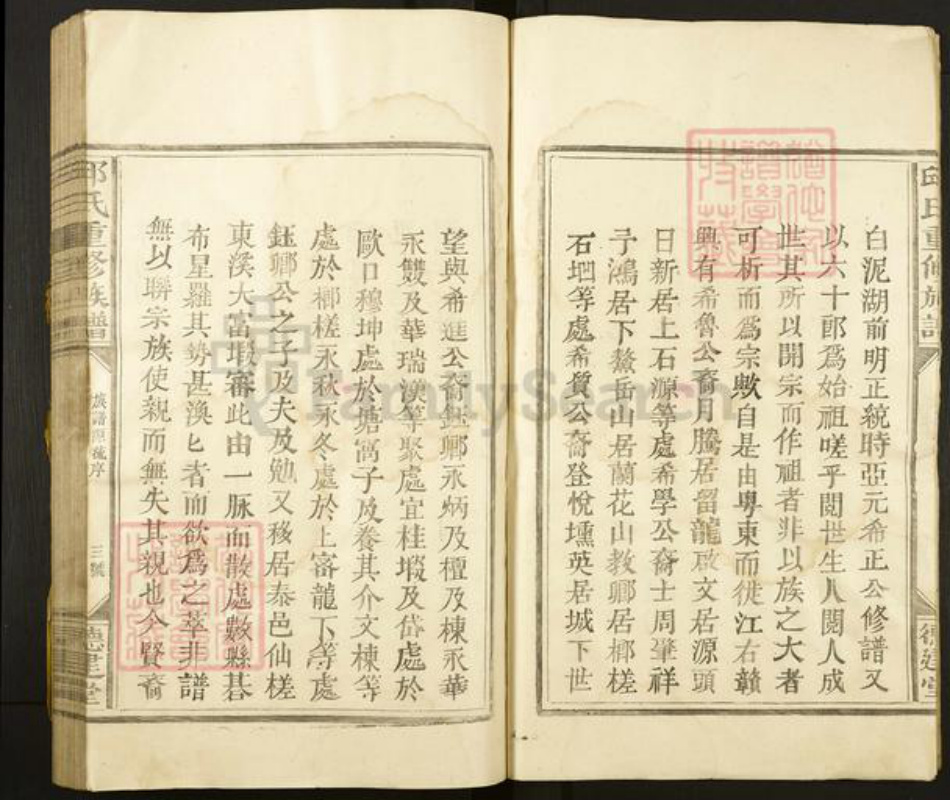 白泥湖前明正統時亞元希正公修譜又
以六十郎為始祖嗟乎閱世生人閱人成
世其所以開宗而作祖者非以族之大者
可析而為宗歟自是由粵東而徙江右贛
興有希魯公裔月騰居留龍啟文居源頭
日新居上石源等處希學公裔士周肇祥
子鴻居下鰲岳山居蘭花山教卿居榔槎
石垇等處希貴公裔登悅壎英居城下世
望與希進公裔鈺卿永炳及檀及棟永華
永雙及華瑞漢等聚處宜桂塅及岱處於
歐口穆坤處於塘窩子及養其介文棟等
處於榔槎永秋永冬處於上審龍下等處
鈺卿公之子及夫及勉又移居泰邑仙槎
東溪大富塅審此由一脉而散處數縣碁
布星羅其勢甚渙匕者而欲為之萃非譜
無以聯宗族使親而無失其親也今賢裔
邱氏重修族譜
族譜源流序
三號
德建堂
FamilySearch